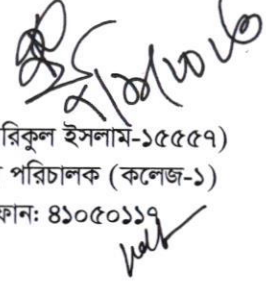 রিকুল ইসলাম-১৫৫৫৭)
পরিচালক (কলেজ-১)
ফোন: ৪১০৫০১১৯